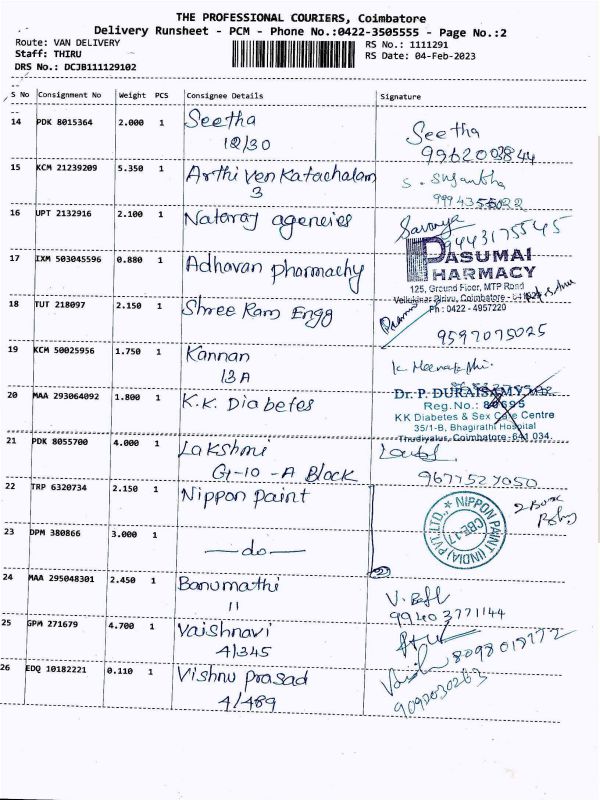 THE PROFESSIONAL COURIERS, Coimbatore
Delivery Runsheet - PCM - Phone No.:0422-3505555 - Page No.:2
Route: VAN DELIVERY
RS No.: 1111291
Staff: THIRU
RS Date: 04-Feb-2023
DRS No.: DCJB111129102
S No Consignment No Weight PCS Consignee Details Signature
14 PDK 8015364 2.000 1 Seetha
12/30
Seetha
9962003844
15 KCM 21239209 5.350 1 Arthi Venkatachalam
3
S. Sugantha
16 UPT 2132916 2.100 1 Nataraj agencies
9443175545
17 IXM 503045596 0.880 1 Adhavan pharmachy
PASUMAI
PHARMACY
125, Ground Floor, MTP Road
Ph : 0422 - 4957220
18 TUT 218097 2.150 1 Shree Ram Engg
9597075025
19 KCM 50025956 1.750 1 Kannan
13A
20 MAA 293064092 1.800 1 K.K. Diabetes
Dr. P. DURAISAMY
Reg. No.: 80695
KK Diabetes & Sex Care Centre
35/1-B, Bhagirathi Hospital
Thudiyalur, Coimbatore-641 034.
21 PDK 8055700 4.000 1 Lakshmi
G1-10 -A Block
9677527050
22 TRP 6320734 2.150 1 Nippon Paint
NIPPON PAINT (INDIA) PVT.LTD.
CBE-17
23 DPM 380866 3.000 1 —do—
24 MAA 295048301 2.450 1 Banumathi
11
99403771144
25 GPM 271679 4.700 1 Vaishnavi
4/345
26 EDQ 10182221 0.110 1 Vishnu prasad
4/489
9090030263